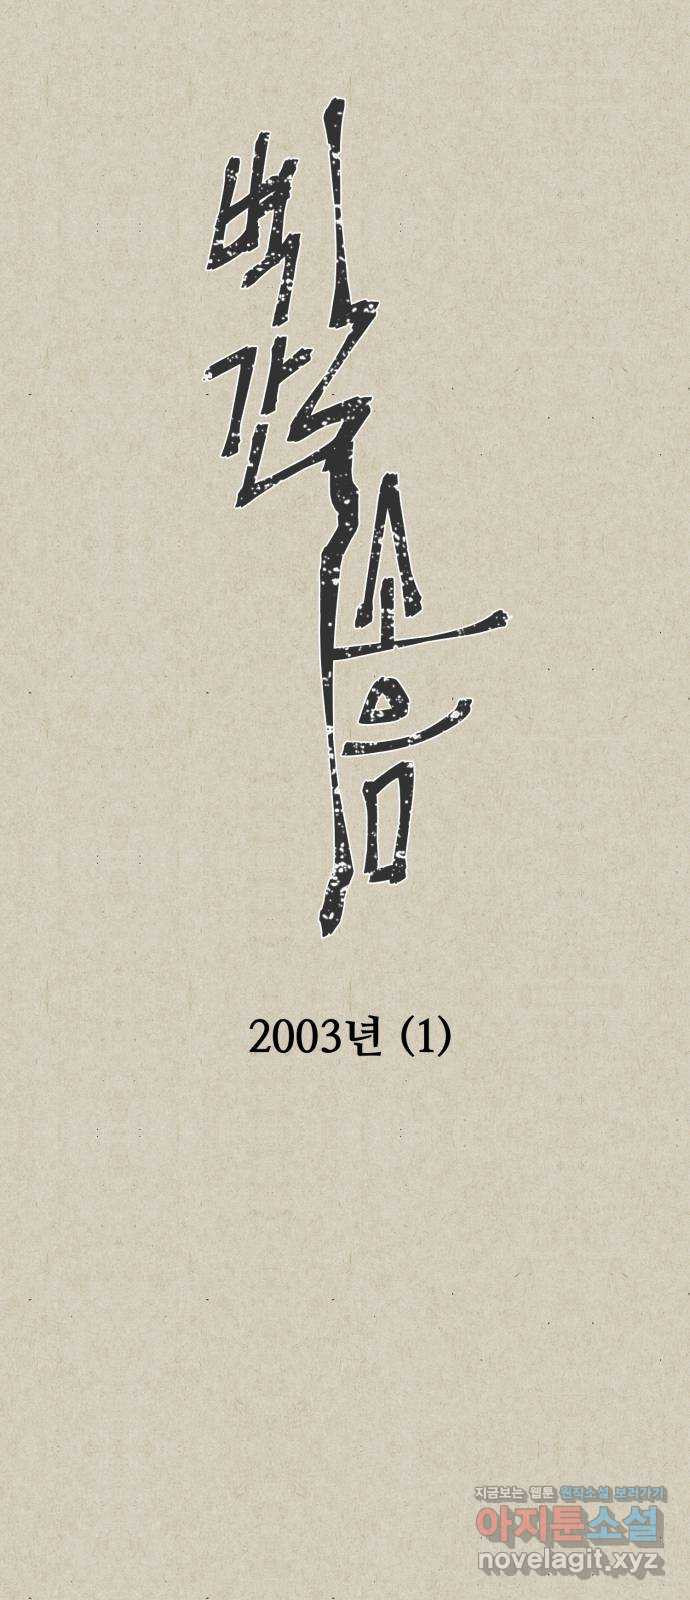 벽간
소음
2003년 (1)
지금보는 웹툰 원작소설 보러가기
아지툰소설
novelagit.xyz